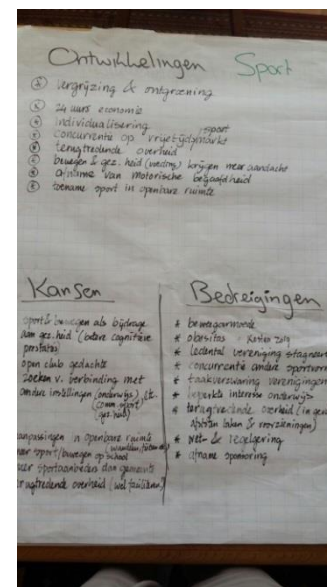 Ontwikkelingen Sport
vergrijzing & ontgroening
24 uurs economie
individualisering
concurrentie op vrijetijdsmarkt sport
terugtredende overheid
bewegen & gez. heid (voeding) krijgen meer aandacht
afname van motorische begaafdheid
toename sport in openbare ruimte
Kansen
sport & bewegen als bijdrage
aan gez. heid (betere cognitieve
prestaties)
open club gedachte
zoeken v. verbinding met
andere instellingen (onderwijs), etc.
(comm. sport)
(gez. heid)
aanpassingen in openbare ruimte
meer sport/bewegen op school
meer sportaanbieders dan gemeente
terugtredende overheid (wel faciliteren)
Bedreigingen
* bewegingsarmoede
* obesitas kosten zorg
* ledental vereniging stagneert
* concurrentie andere sportvormen
* taakverzwaring verenigingen
* beperkte interesse onderwijs
* terugtredende overheid (in geld
afstoten taken & voorzieningen)
* wet- & regelgeving
* afname sponsoring